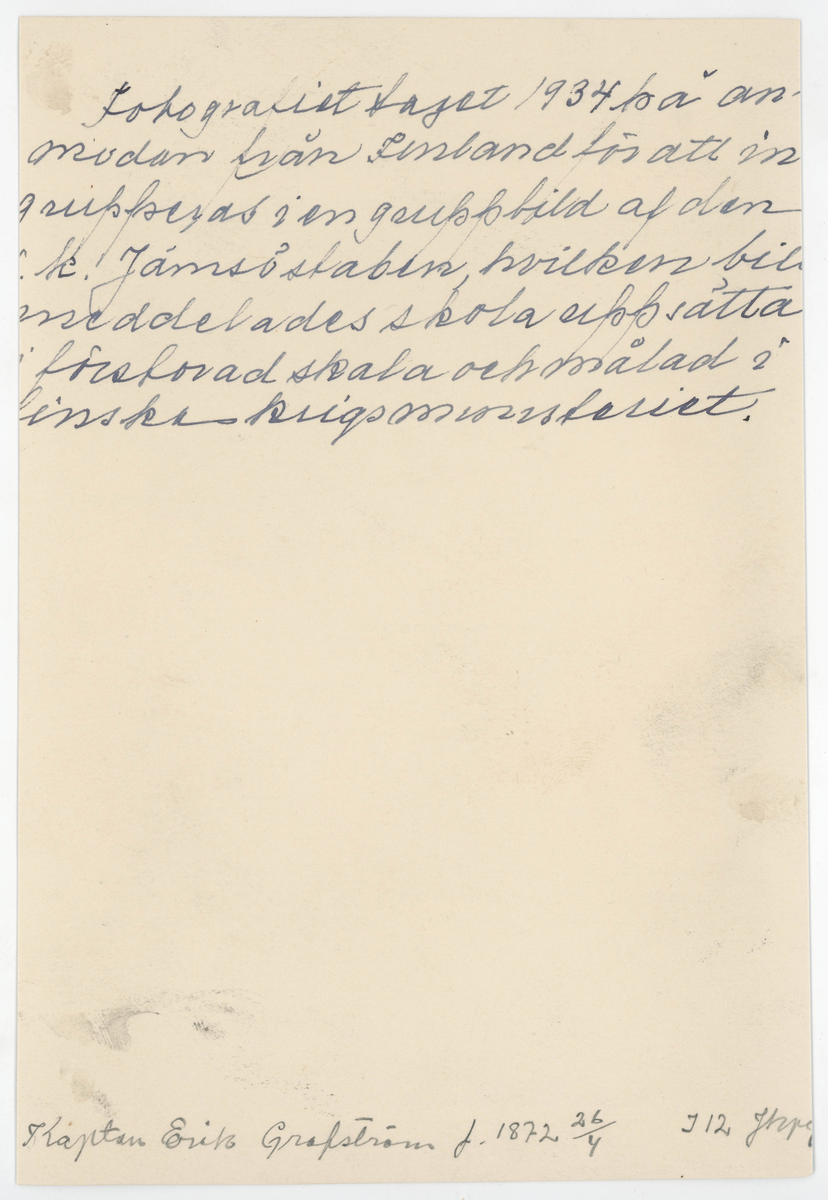 Fotografiet taget 1934 på an-
modan från Finland för att in
grupperas i en gruppbild af den
s.k. Jämsöstaben, hvilken bild
meddelades skola uppsätta
i förstorad skala och målad i
finska krigsministeriet.
Kapten Erik Grafström f. 1872 26/4 I 12